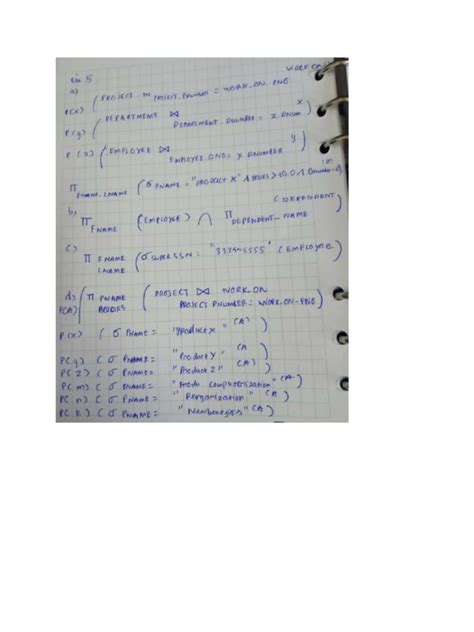 5
WORK_ON
a)
P(x) ( PROJECT ⋈ PROJECT.Pnumber = WORK_ON.PNO )
P(y) ( DEPARTMENT ⋈ DEPARTMENT.DNUMBER = X.DNUM x )
P(Z) ( EMPLOYEE ⋈ EMPLOYEE.DNO = Y DNUMBER y )
π FNAME, LNAME ( σ PNAME = "PRODUCT X" ∧ HOURS > 10.0 ∧
b) π FNAME ( EMPLOYEE ) ∩ π DEPENDENT_NAME ( DEPENDENT )
c) π FNAME LNAME ( σ SUPERSSN = "333445555" ( EMPLOYEE )
d) P(A) ( π PNAME HOURS ( PROJECT ⋈ WORK_ON PROJECT PNUMBER = WORK_ON-PNO )
P(x) ( σ PNAME = "Product X" (A) )
P(y) ( σ PNAME = "Product Y" (A) )
P(Z) ( σ PNAME = "Product Z" (A) )
P(m) ( σ PNAME = Computerisation" (A) )
P(n) ( σ PNAME = "Reorganization" (A) )
P(k) ( σ PNAME = "Newbenegits" (A) )